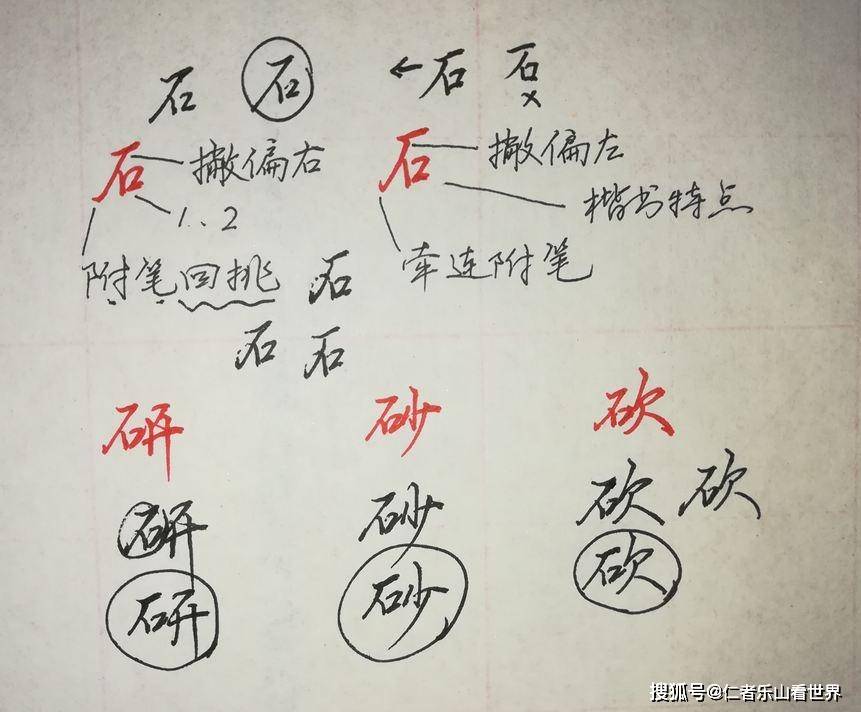 石 石 ←石 石
×
石 撇偏右 石 撇偏左
1、2 楷书特点
附笔回挑 石 牵连附笔
石 石
研 砂 砍
研 砂 砍 砍
研 砂 砍
搜狐号@仁者乐山看世界